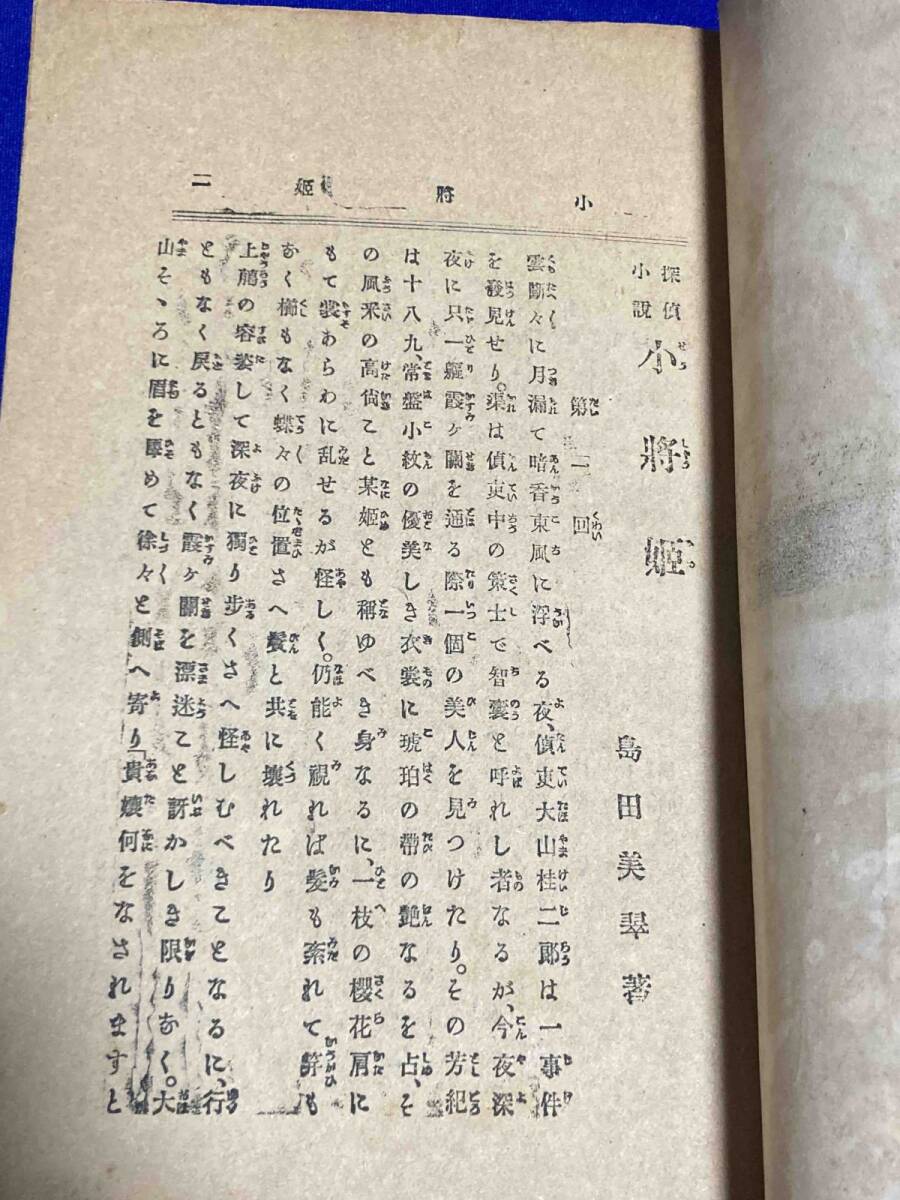 小將姬 二
探偵小説 小將姬
島田美翠著
第一回
雲斷々に月漏て暗香東風に浮べる夜、偵吏大山桂二郎は一事件
を發見せり。渠は偵吏中の策士で智囊と呼れし者なるが、今夜深
夜に只一軀霞ヶ關を通る際一個の美人を見つけたり。その芳紀
は十八九、常盤小紋の優美しき衣裳に琥珀の帶の艶なるを占、そ
の風采の高尙こと某姬とも稱ゆべき身なるに、一枝の櫻花肩に
もて裳あらわに乱せるが怪しく。仍能く視れば髮も紊れて笄も
なく櫛もなく蝶々の位置さへ髮と共に壊れたり
上﨟の容姿して深夜に獨り步くさへ怪しむべきことなるに、行
ともなく戾るともなく霞ヶ關を漂迷こと訝かしき限りなく。大
山そゞろに眉を顰めて徐々と側へ寄り『貴孃何をなされますと